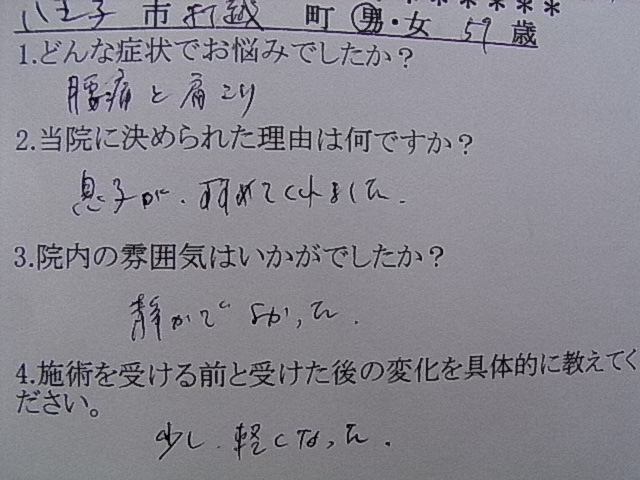 八王子市打越町 男・女 59歳
1.どんな症状でお悩みでしたか?
腰痛と肩こり
2.当院に決められた理由は何ですか?
息子が、羽めてくれました.
3.院内の雰囲気はいかがでしたか?
静かでよかった.
4.施術を受ける前と受けた後の変化を具体的に教えてく
ださい。
少し軽くなった.